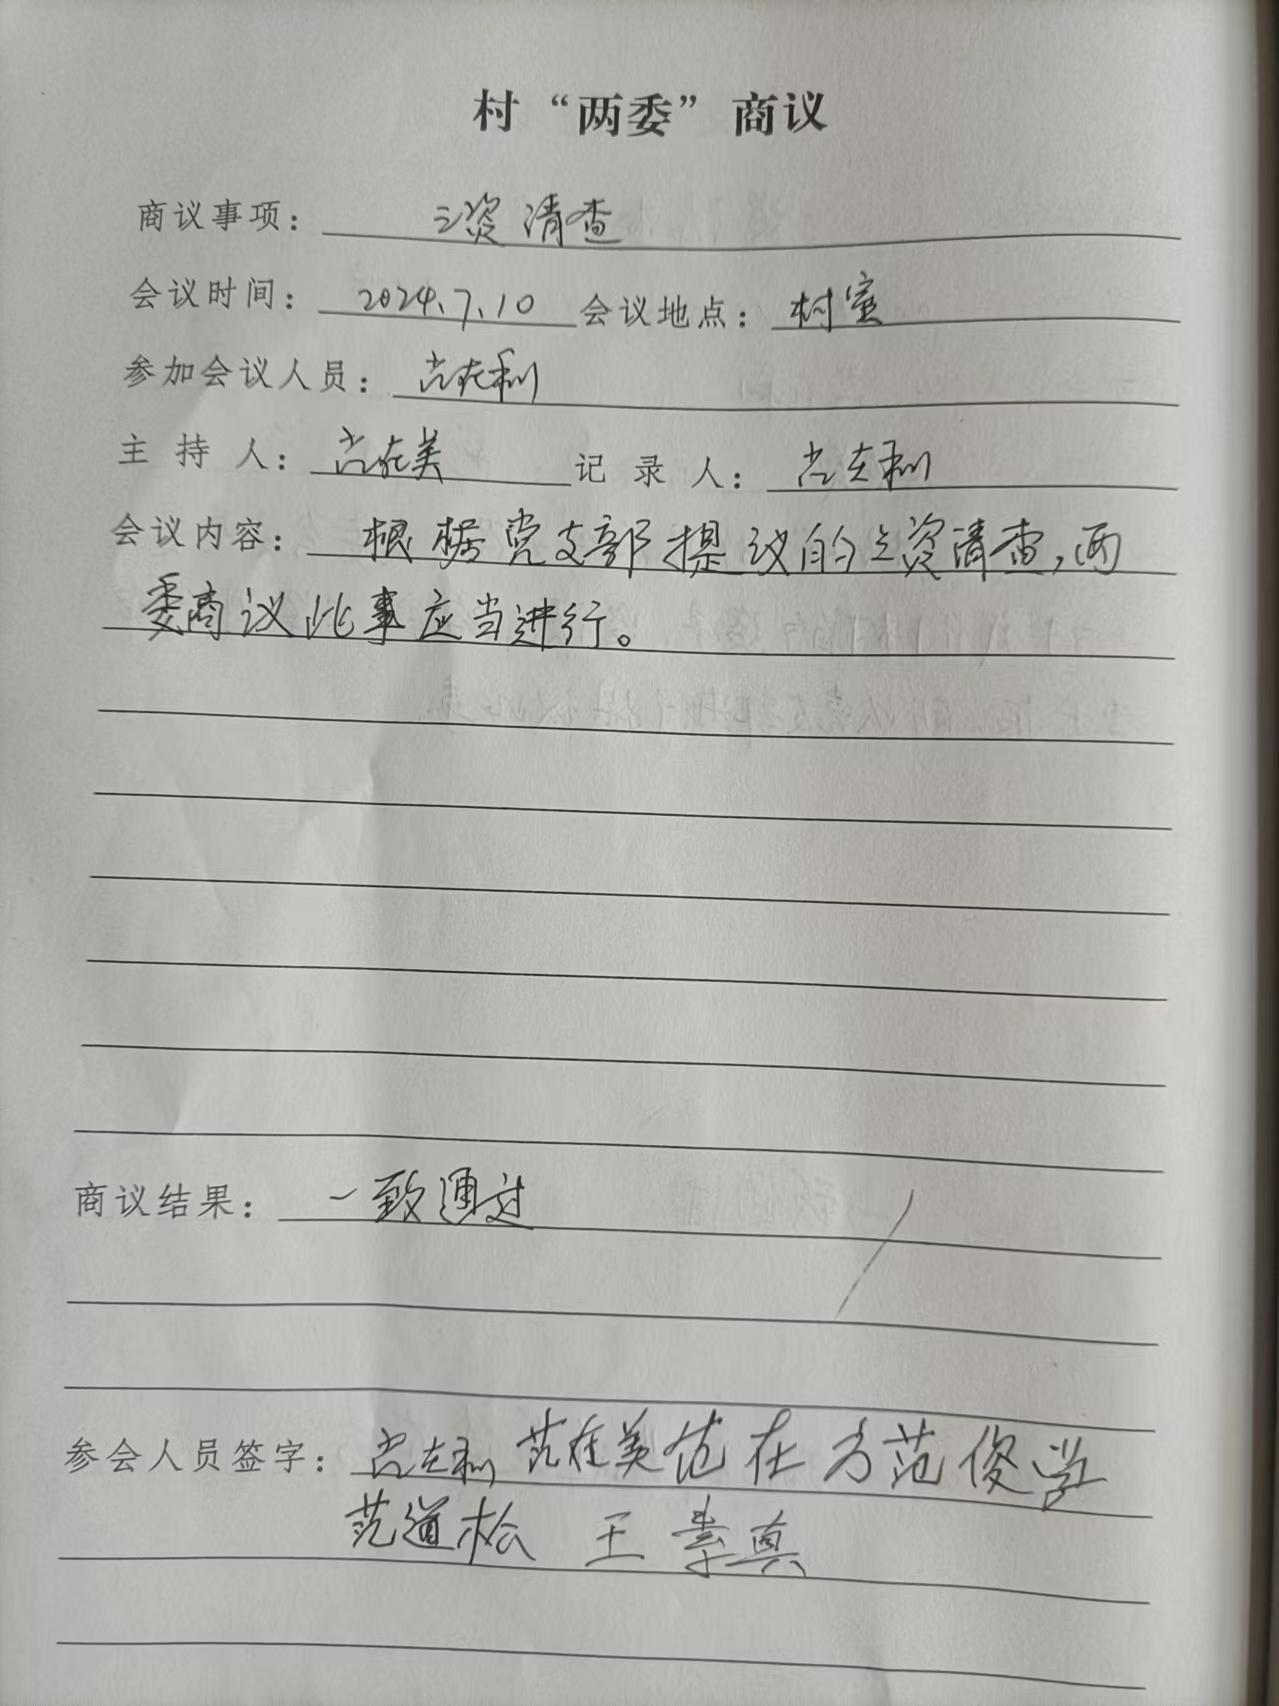 村“两委”商议
商议事项：三资清查
会议时间：2024.7.10 会议地点：村室
参加会议人员：范在利
主持人：范在美 记录人：范在利
会议内容：根据党支部提议的三资清查，两
委商议此事应当进行。
商议结果：一致通过
参会人员签字：范在利 范在美 范在方 范俊学
范道松 王素真